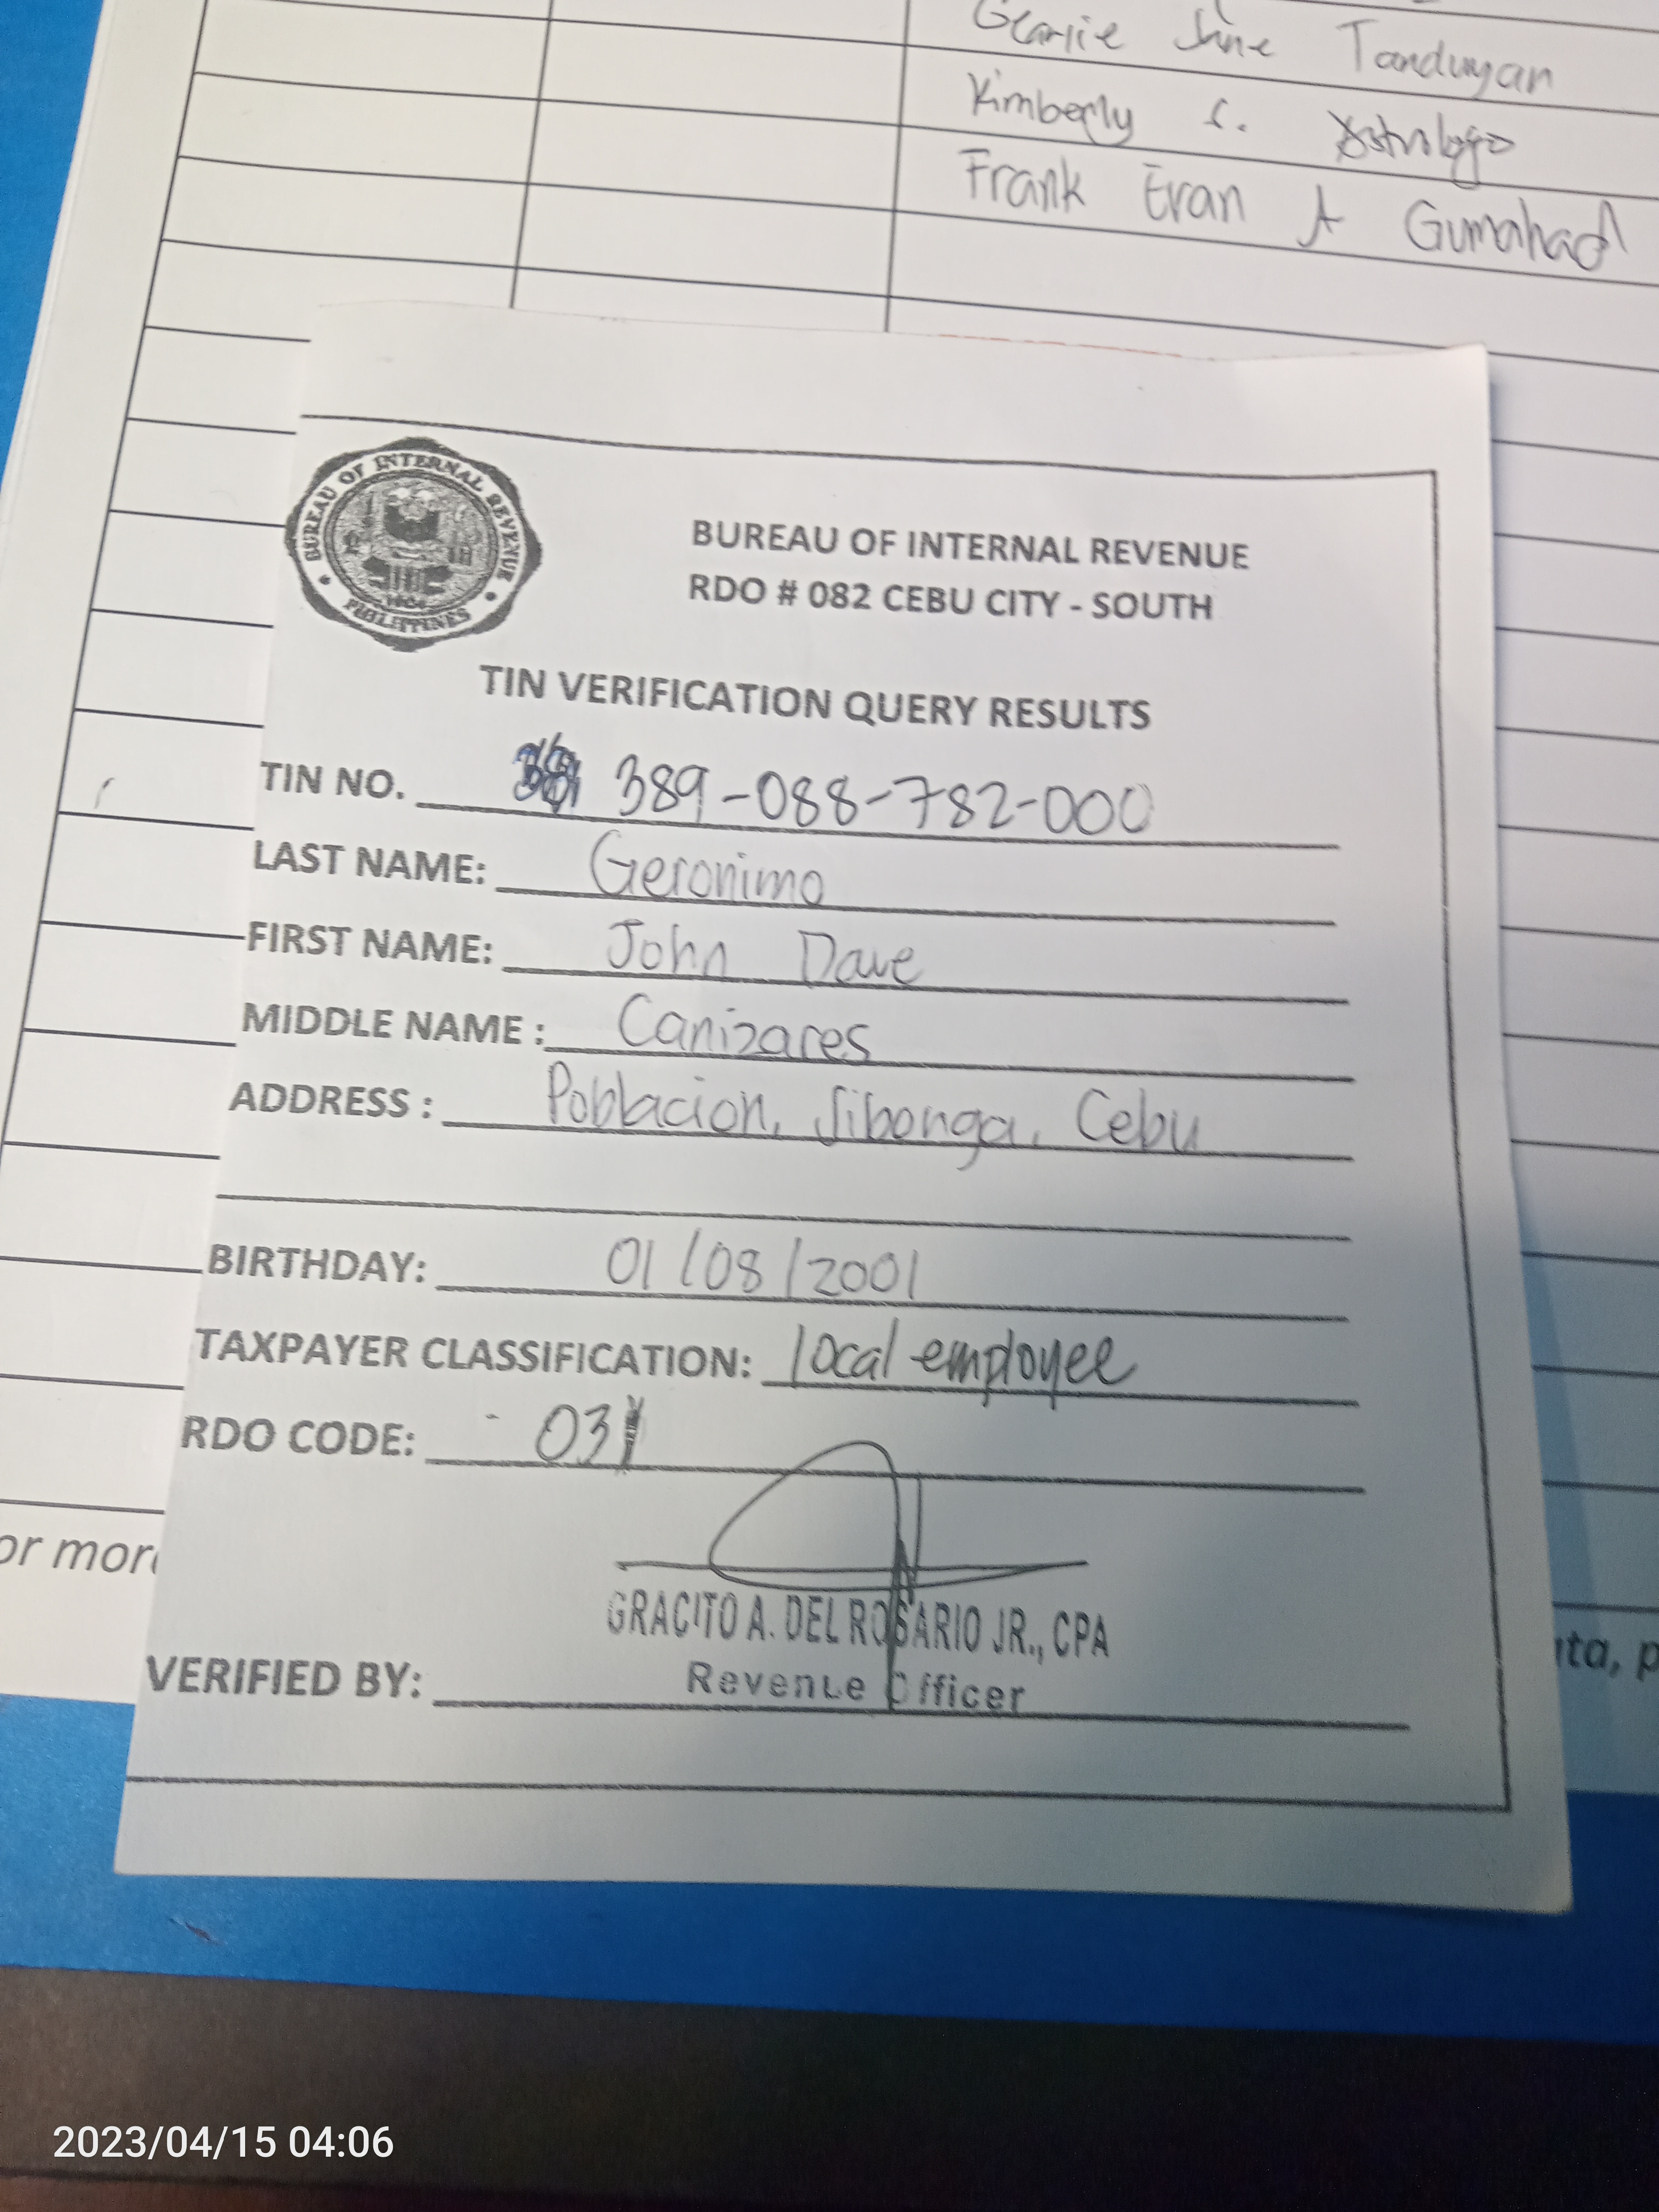 Gearlie Jane Tanduyan
Kimberly S. Astrologo
Frank Evan A Gumahad
BUREAU OF INTERNAL REVENUE
PHILIPPINES
1904
BUREAU OF INTERNAL REVENUE
RDO # 082 CEBU CITY - SOUTH
TIN VERIFICATION QUERY RESULTS
TIN NO. 389-088-782-000
LAST NAME: Geronimo
FIRST NAME: John Dave
MIDDLE NAME : Canizares
ADDRESS : Poblacion, Sibonga, Cebu
BIRTHDAY: 01/08/2001
TAXPAYER CLASSIFICATION: local employee
RDO CODE: 03
or more
GRACITO A. DEL ROSARIO JR., CPA
ata, p
VERIFIED BY: Revenue Officer
2023/04/15 04:06